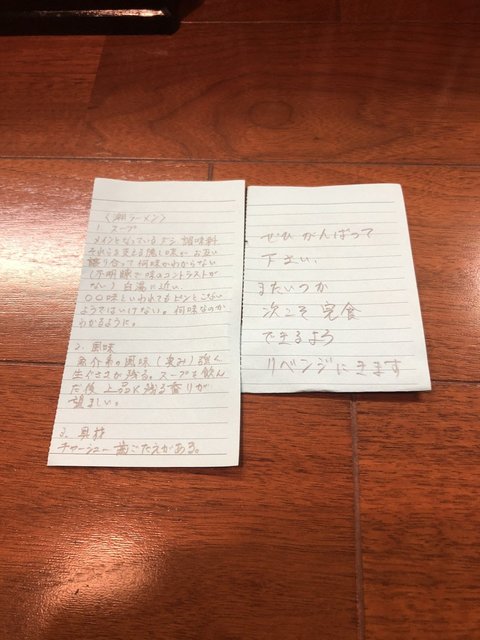 〈潮ラーメン〉
1. スープ
メインとなっているダシ 調味料
それらを支える隠し味が お互い
譲り合って何味かわからない
(不明瞭で味のコントラストが
ない) 白湯に近い
〇〇味といわれてもピンとこない
ようではいけない。何味なのか
わかるように。
2. 風味
魚介系の風味(臭み)強く
生ぐささが残る。スープを飲ん
だ後 上品に残る香りが
望ましい。
3. 具材
チャーシュー 歯ごたえがある。
ぜひがんばって
下さい。
またいつか
次こそ完食
できるよう
リベンジにきます